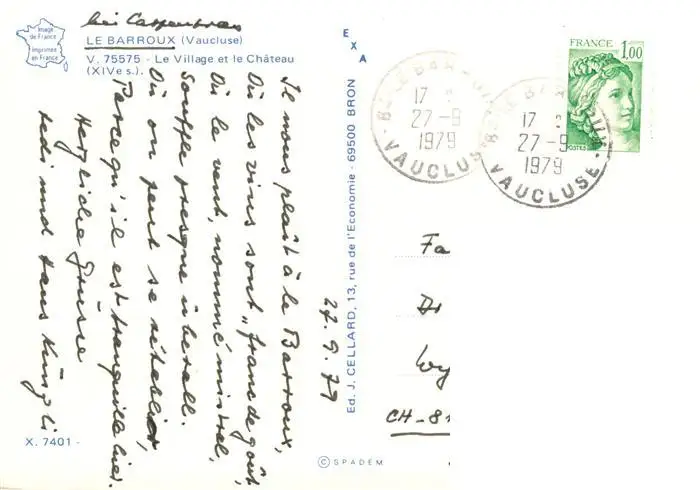 bei Carpentras
Image
de France
Imprimée
en France
LE BARROUX (Vaucluse)
V. 75575 - Le Village et le Château
(XIVe s.).
27.9.79
Il nous plaît à le Barroux,
Où les vins sont „franc de goût,
Où le vent, nommé mistral,
Souffle presque überall.
Où on peut se rétablir,
Parce qu'il est tranquille hier.
Herzliche Grüsse
Hedi und Hans Küngli
X. 7401 -
EXA
Ed. J. CELLARD, 13, rue de l'Economie - 69500 BRON
© SPADEM
84 LE BARROUX
17
27-9
1979
VAUCLUSE
84 LE BARROUX
17
27-9
1979
VAUCLUSE
FRANCE
1,00
POSTES
Fa
Dr
Wy
CH-81